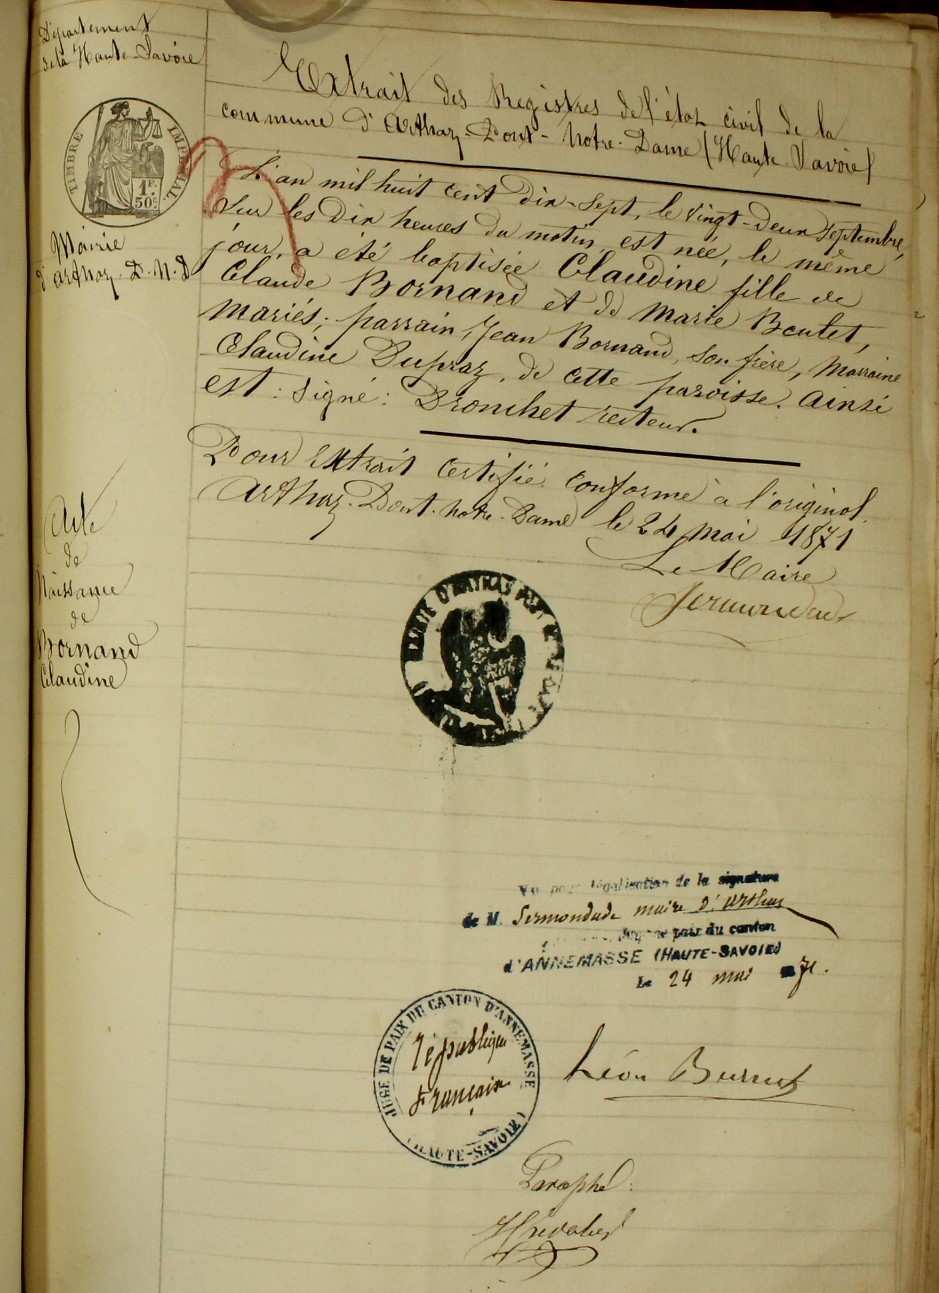 Département
de la Haute Savoie
TIMBRE IMPERIAL
1F.
50c.
Mairie
d'Arthaz-P-N-D
Acte
de
Naissance
de
Bornand
Claudine
Extrait des Registres de l'état civil de la
commune d'Arthaz-Pont-Notre-Dame (Haute Savoie)
L'an mil huit cent dix-sept, le vingt-deux septembre,
sur les dix heures du matin est née, le même
jour, a été baptisée Claudine fille de
Claude Bornand et de Marie Boutet,
mariés; parrain, Jean Bornand, son frère, marraine
Claudine Dupraz, de cette paroisse. Ainsi
est: signé: Dronchet recteur.
Pour Extrait certifié conforme à l'original
Arthaz-Pont-Notre-Dame le 24 mai 1871
Le Maire
MAIRIE D'ARTHAS PONT
Vu pour légalisation de la signature
de M. Sermondade maire d'Arthaz
paix du canton
d'ANNEMASSE (HAUTE-SAVOIE)
Le 24 mai 71.
JUGE DE PAIX DU CANTON D'ANNEMASSE
République
Française
(HAUTE-SAVOIE)
Léon
Paraphé: